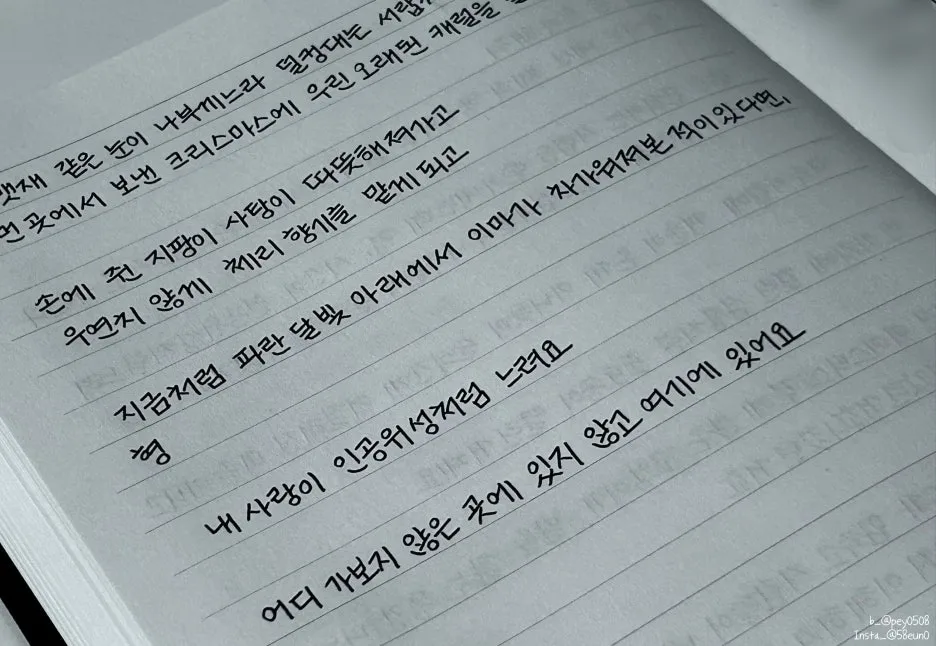 같은 눈이 나부끼느라 덜컹대는
곳에서 보낸 크리스마스에 우린 오래된 캐럴을
손에 쥔 지팡이 사탕이 따뜻해져가고
우연지 않게 체리 향기를 맡게 되고
지금처럼 파란 달빛 아래에서 이마가 차가워져본 적이 있다면,
형
내 사랑이 인공위성처럼 느려요
어디 가보지 않은 곳에 있지 않고 여기에 있어요
b_@pey0508
Insta_@58eun0